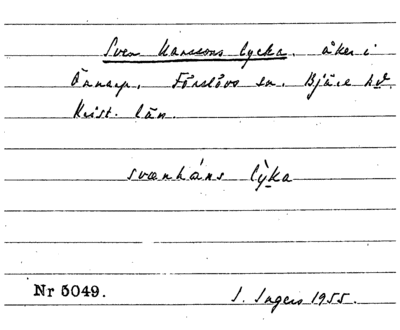 Sven Hanssons lycka, åker i
Önnarp, Förslövs sn. Bjäre hd.
Krist. län.
svænháns lỳka
Nr 5049.
I. Ingers 1955.